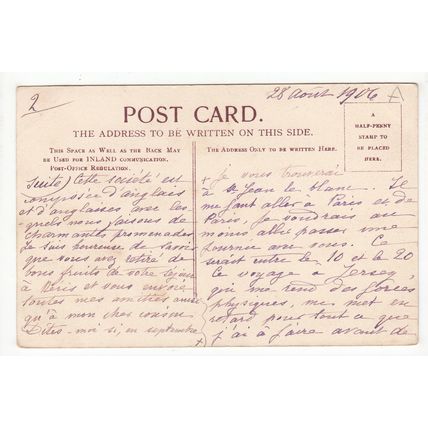 2
28 Août 1906
A
POST CARD.
THE ADDRESS TO BE WRITTEN ON THIS SIDE.
THIS SPACE AS WELL AS THE BACK MAY
BE USED FOR INLAND COMMUNICATION.
POST-OFFICE REGULATION.
suite) Cette société est
composée d'anglais
et d'anglaises avec les-
quels nous faisons de
charmantes promenades
Je suis heureuse de savoir
que vous avez retiré de
bons fruits de votre séjour
à Paris et vous envoie
toutes mes amitiés ainsi
qu'à mon cher cousin
Dites-moi si, en septembre
+
THE ADDRESS ONLY TO BE WRITTEN HERE.
A
HALF-PENNY
STAMP TO
BE PLACED
HERE.
+ je vous trouverai
à St Jean le blanc. Il
me faut aller à Paris et de
Paris, je voudrais au
moins aller passer une
journée avec vous. Ce
serait entre le 10 et le 20
Le voyage à Jersey,
qui me rend des forces
physiques, me met en
retard pour tout ce que
j'ai à faire avant de